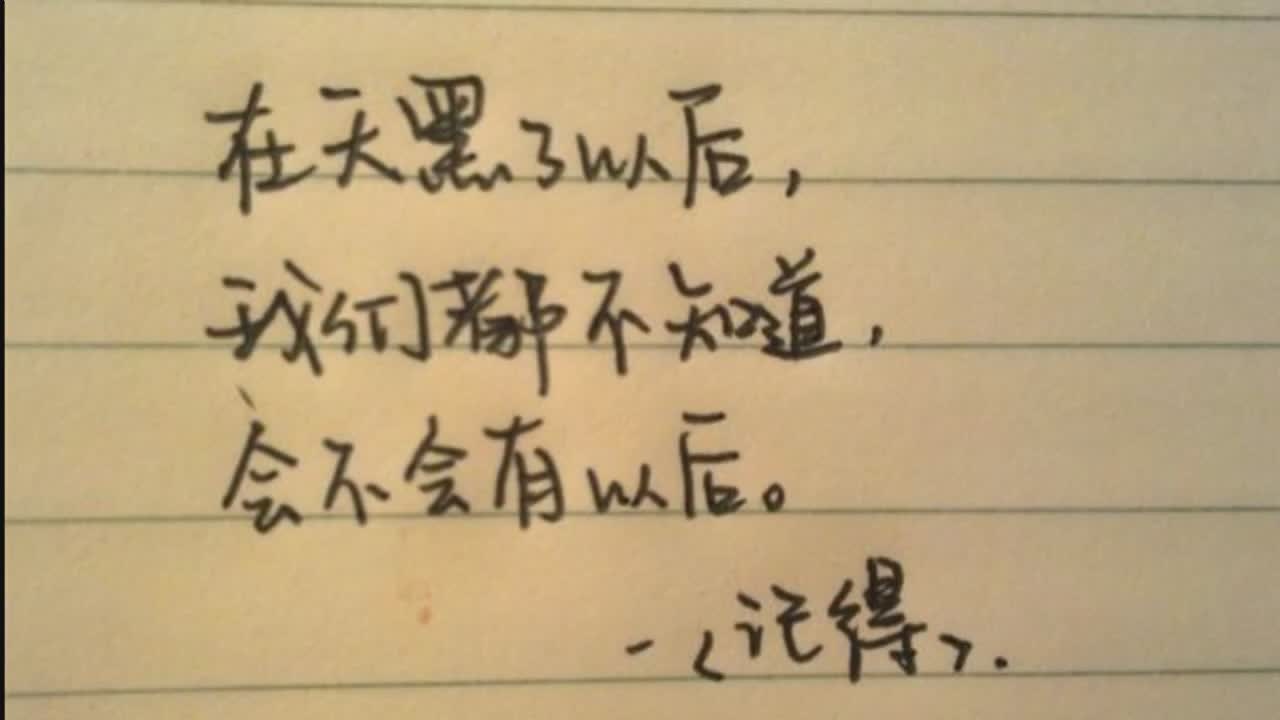 在天黑了以后,
我们都不知道,
会不会有以后。
-<记得>.